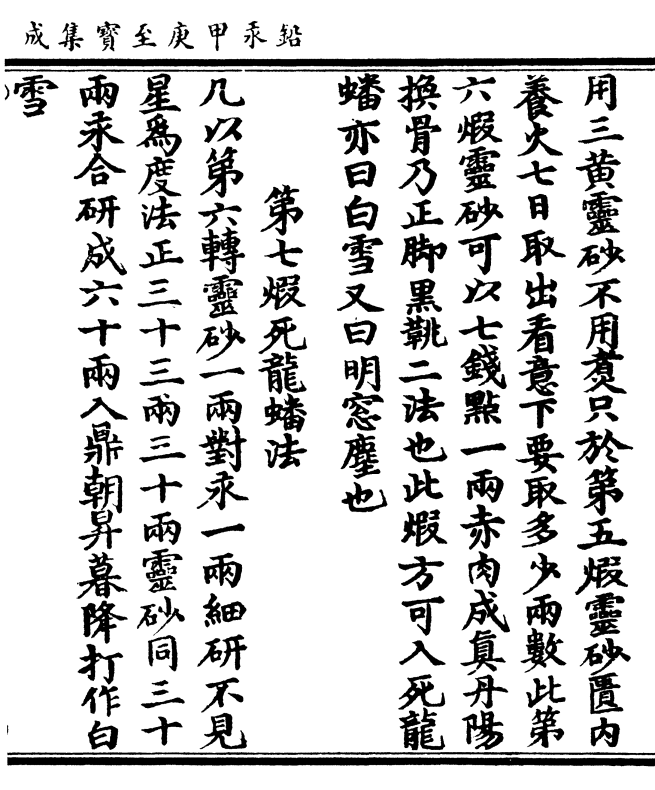 鉛汞甲庚至寶集成
用三黄靈砂不用煑只於第五煆靈砂匱内
養火七日取出看意下要取多少兩數此第
六煆靈砂可以七錢點一兩赤肉成眞丹陽
換骨乃正脚黑靴二法也此煆方可入死龍
蟠亦曰白雪又曰明窓塵也
第七煆死龍蟠法
凡以第六轉靈砂一兩對汞一兩細研不見
星爲度法正三十三兩三十兩靈砂同三十
兩汞合研成六十兩入鼎朝昇暮降打作白
雪